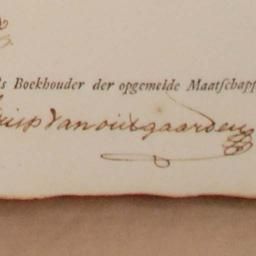 s Boekhouder der opgemelde Maatſchapp
Van outs gaarden